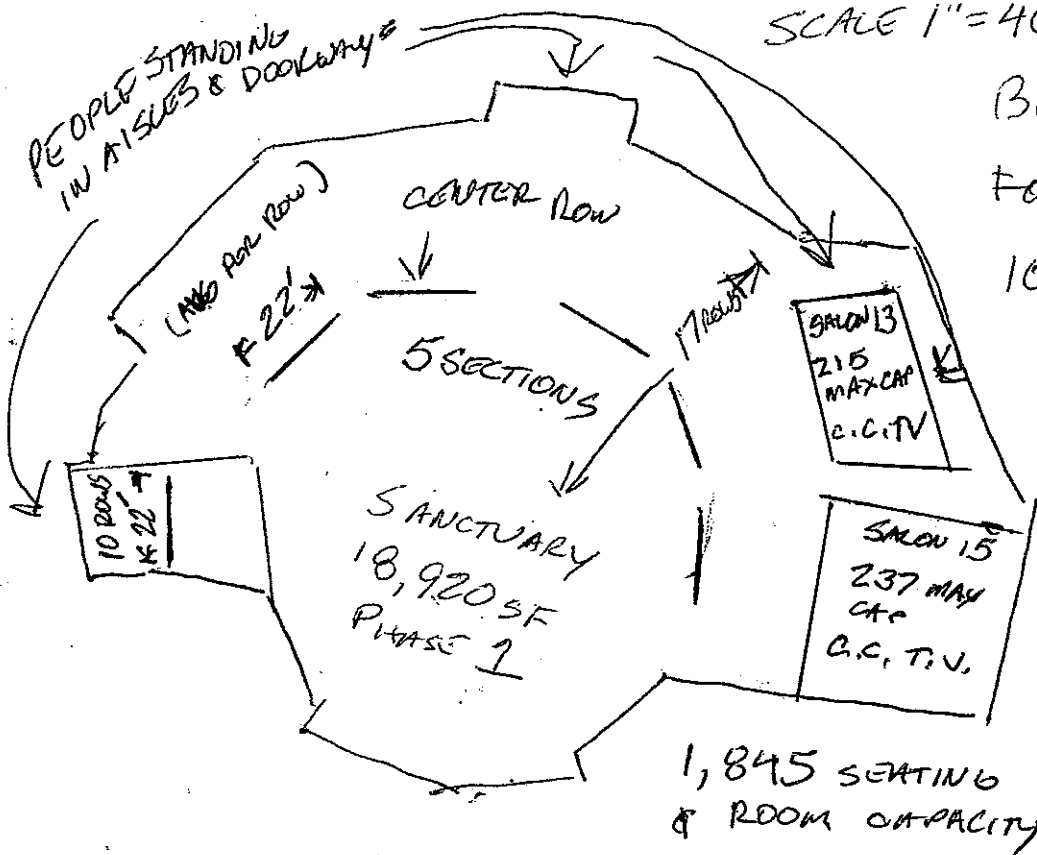 SCALE 1"=40
PEOPLE STANDING
IN AISLES & DOORWAYS
(AVG PER ROW)
22'
CENTER ROW
5 SECTIONS
17 ROWS
SALON 13
215
MAX CAP
C.C.TV
10 ROWS
22'
SANCTUARY
18,920 SF
PHASE 1
SALON 15
237 MAX
CAP
C.C. T.V.
1,845 SEATING
& ROOM CAPACITY